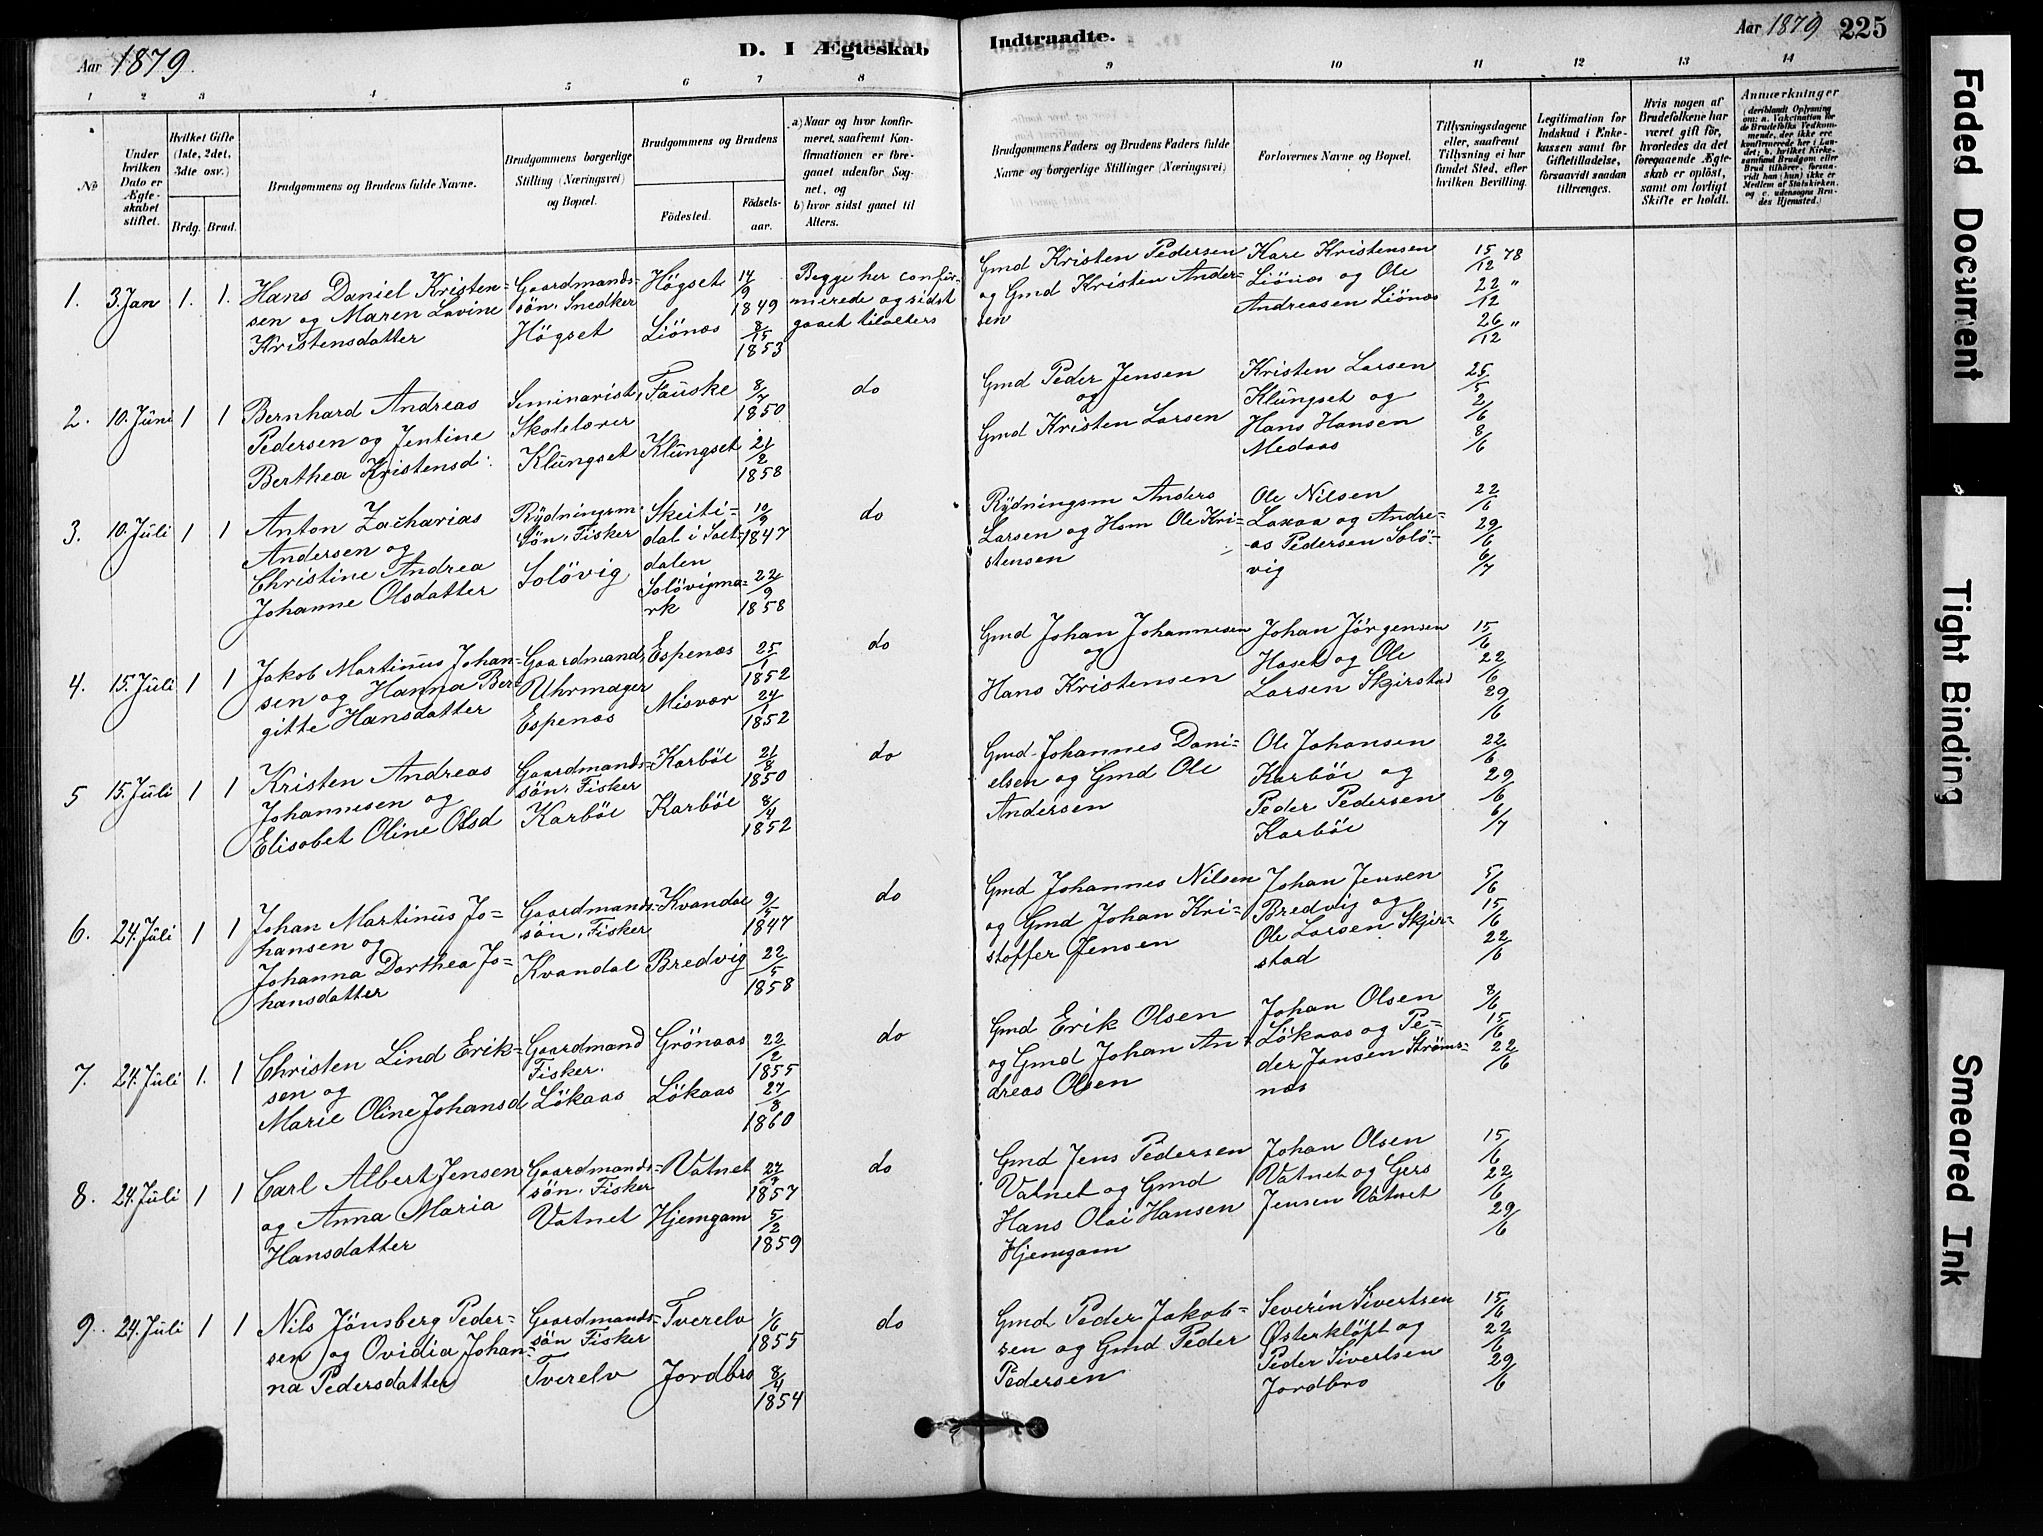 Aar 1879
D. I Ægteskab Indtraadte.
Aar 1879 225
1 2 3 4 5 6 7 8 9 10 11 12 13 14
No
Under hvilken Dato er Ægteskabet stiftet.
Hvilket Gifte (1ste, 2det, 3die osv.)
Brdg. Brud.
Brudgommens og Brudens fulde Navne.
Brudgommens borgerlige Stilling (Næringsvei) og Bopæl.
Brudgommens og Brudens
Födested.
Födsels-aar.
a) Naar og hvor konfirmeret, saafremt Konfirmationen er foregaaet udenfor Sognet, og
b) hvor sidst gaaet til Alters.
Brudgommens Faders og Brudens Faders fulde Navne og borgerlige Stillinger (Næringsvei)
Forlovernes Navne og Bopæl.
Tillysningsdagene eller, saafremt Tillysning ei har fundet Sted, efter hvilken Bevilling.
Legitimation for Indskud i Enkekassen samt for Giftetilladelse, forsaavidt saadan tiltrænges.
Hvis nogen af Brudefolkene har været gift för, hvorledes da det foregaaende Ægteskab er oplöst, samt om lovligt Skifte er holdt.
Anmærkninger
(deriblandt Oplysning om: a. Vakcination for de Brudefolks Vedkommende, der ikke ere konfirmerede her i Landet; b. hvilket Kirkesamfund Brudgom eller Brud tilhörer, forsaavidt han (hun) ikke er Medlem af Statskirken, og c. udensogns Brudes Hjemsted.)
1. 3. Jan 1. 1.
Hans Daniel Kristen-
sen og Maren Lovine
Kristensdatter
Gaardmands-
sön. Snedker
Högset
Högset 14/9 1849
Liönæs 8/15 1853
Begge her confir-
merede og sidst
gaaet tilalters
Gmd Kristen Pedersen
og Gmd Kristen Ander-
sen
Kare Kristensen
Liönæs og Ole
Andreasen Liönæs
15/12 78
22/12 "
26/12 "
2. 10. Jüni 1 1
Bernhard Andreas
Pedersen og Jentine
Berthea Kristensd:
Seminarist,
Skolelærer
Klüngset
Faüske 8/7 1850
Klüngset 21/2 1858
do
Gmd Peder Jensen
og
Gmd Kristen Larsen
Kristen Larsen
Klüngset og
Hans Hansen
Medaas
25/5
2/6
8/6
3. 10. Jüli 1 1
Anton Zacharias
Andersen og
Christine Andrea
Johanne Olsdatter
Rÿdningsm.
sön. Fisker
Solövig
Skeiti-
dal i Salt-
dalen
10/9 1847
Solövigma-
rk
22/9 1858
do
Rÿdningsm Anders
Larsen og Hsm Ole Kri-
stensen
Ole Nilsen
Laxaa og Andre-
as Pedersen Solö-
vig
22/6
29/6
6/7
4. 15. Jüli 1 1
Jakob Martinüs Johan-
sen og Hanna Ber-
gitte Hansdatter
Gaardmand,
Uhrmager
Espenæs
Espenæs 25/1 1852
Misvær 24/1 1852
do
Gmd Johan Johannesen
og
Hans Kristensen
Johan Jörgensen
Haset og Ole
Larsen Skjerstad
15/6
22/6
29/6
5 15. Jüli 1 1
Kristen Andreas
Johannesen og
Elisabet Oline Olsd
Gaardmands-
sön. Fisker
Karböe
Karböe 21/8 1850
Karböe 8/4 1852
do
Gmd Johannes Dani-
elsen og Gmd Ole
Andersen
Ole Johansen
Karböe og
Peder Pedersen
Karböe
22/6
29/6
6/7
6. 24. Jüli 1 1
Johan Martinüs Jo-
hansen og
Johanna Dorthea Jo-
hansdatter
Gaardmands-
sön. Fisker
Kvandal
Kvandal 9/5 1847
Bredvig 22/5 1858
do
Gmd Johannes Nilsen
og Gmd Johan Kri-
stoffer Jensen
Johan Jensen
Bredvig og
Ole Larsen Skjer-
stad
5/6
15/6
22/6
7. 24. Jüli 1. 1
Christen Lind Erik-
sen og
Marie Oline Johansd
Gaardmand
Fisker.
Lökaas
Grönaas 22/2 1855
Lökaas 27/8 1860
do
Gmd Erik Olsen
og Gmd Johan An-
dreas Olsen
Johan Olsen
Lökaas og Pe-
der Jansen Ströms-
næs
8/6
15/6
22/6
8. 24. Jüli 1 1
Carl Albert Jensen
og Anna Maria
Hansdatter
Gaardmands-
sön. Fisker
Vatnet
Vatnet 27/7 1857
Hjemgam 5/2 1859
do
Gmd Jens Pedersen
Vatnet og Gmd
Hans Olai Hansen
Hjemgam
Johan Olsen
Vatnet og Gers
Jensen Vatnet
15/6
22/6
29/6
9. 24. Jüli 1 1
Nils Jönsberg Peder-
sen og Ovidia Johan-
na Pedersdatter
Gaardmands-
sön Fisker
Tverelv
Tverelv 1/6 1855
Jordbro 8/4 1854
do
Gmd Peder Jakob-
sen og Gmd Peder
Pedersen
Severin Sivertsen
Østerklöft og
Peder Sivertsen
Jordbro
15/6
22/6
29/6
Faded Document
Tight Binding
Smeared Ink